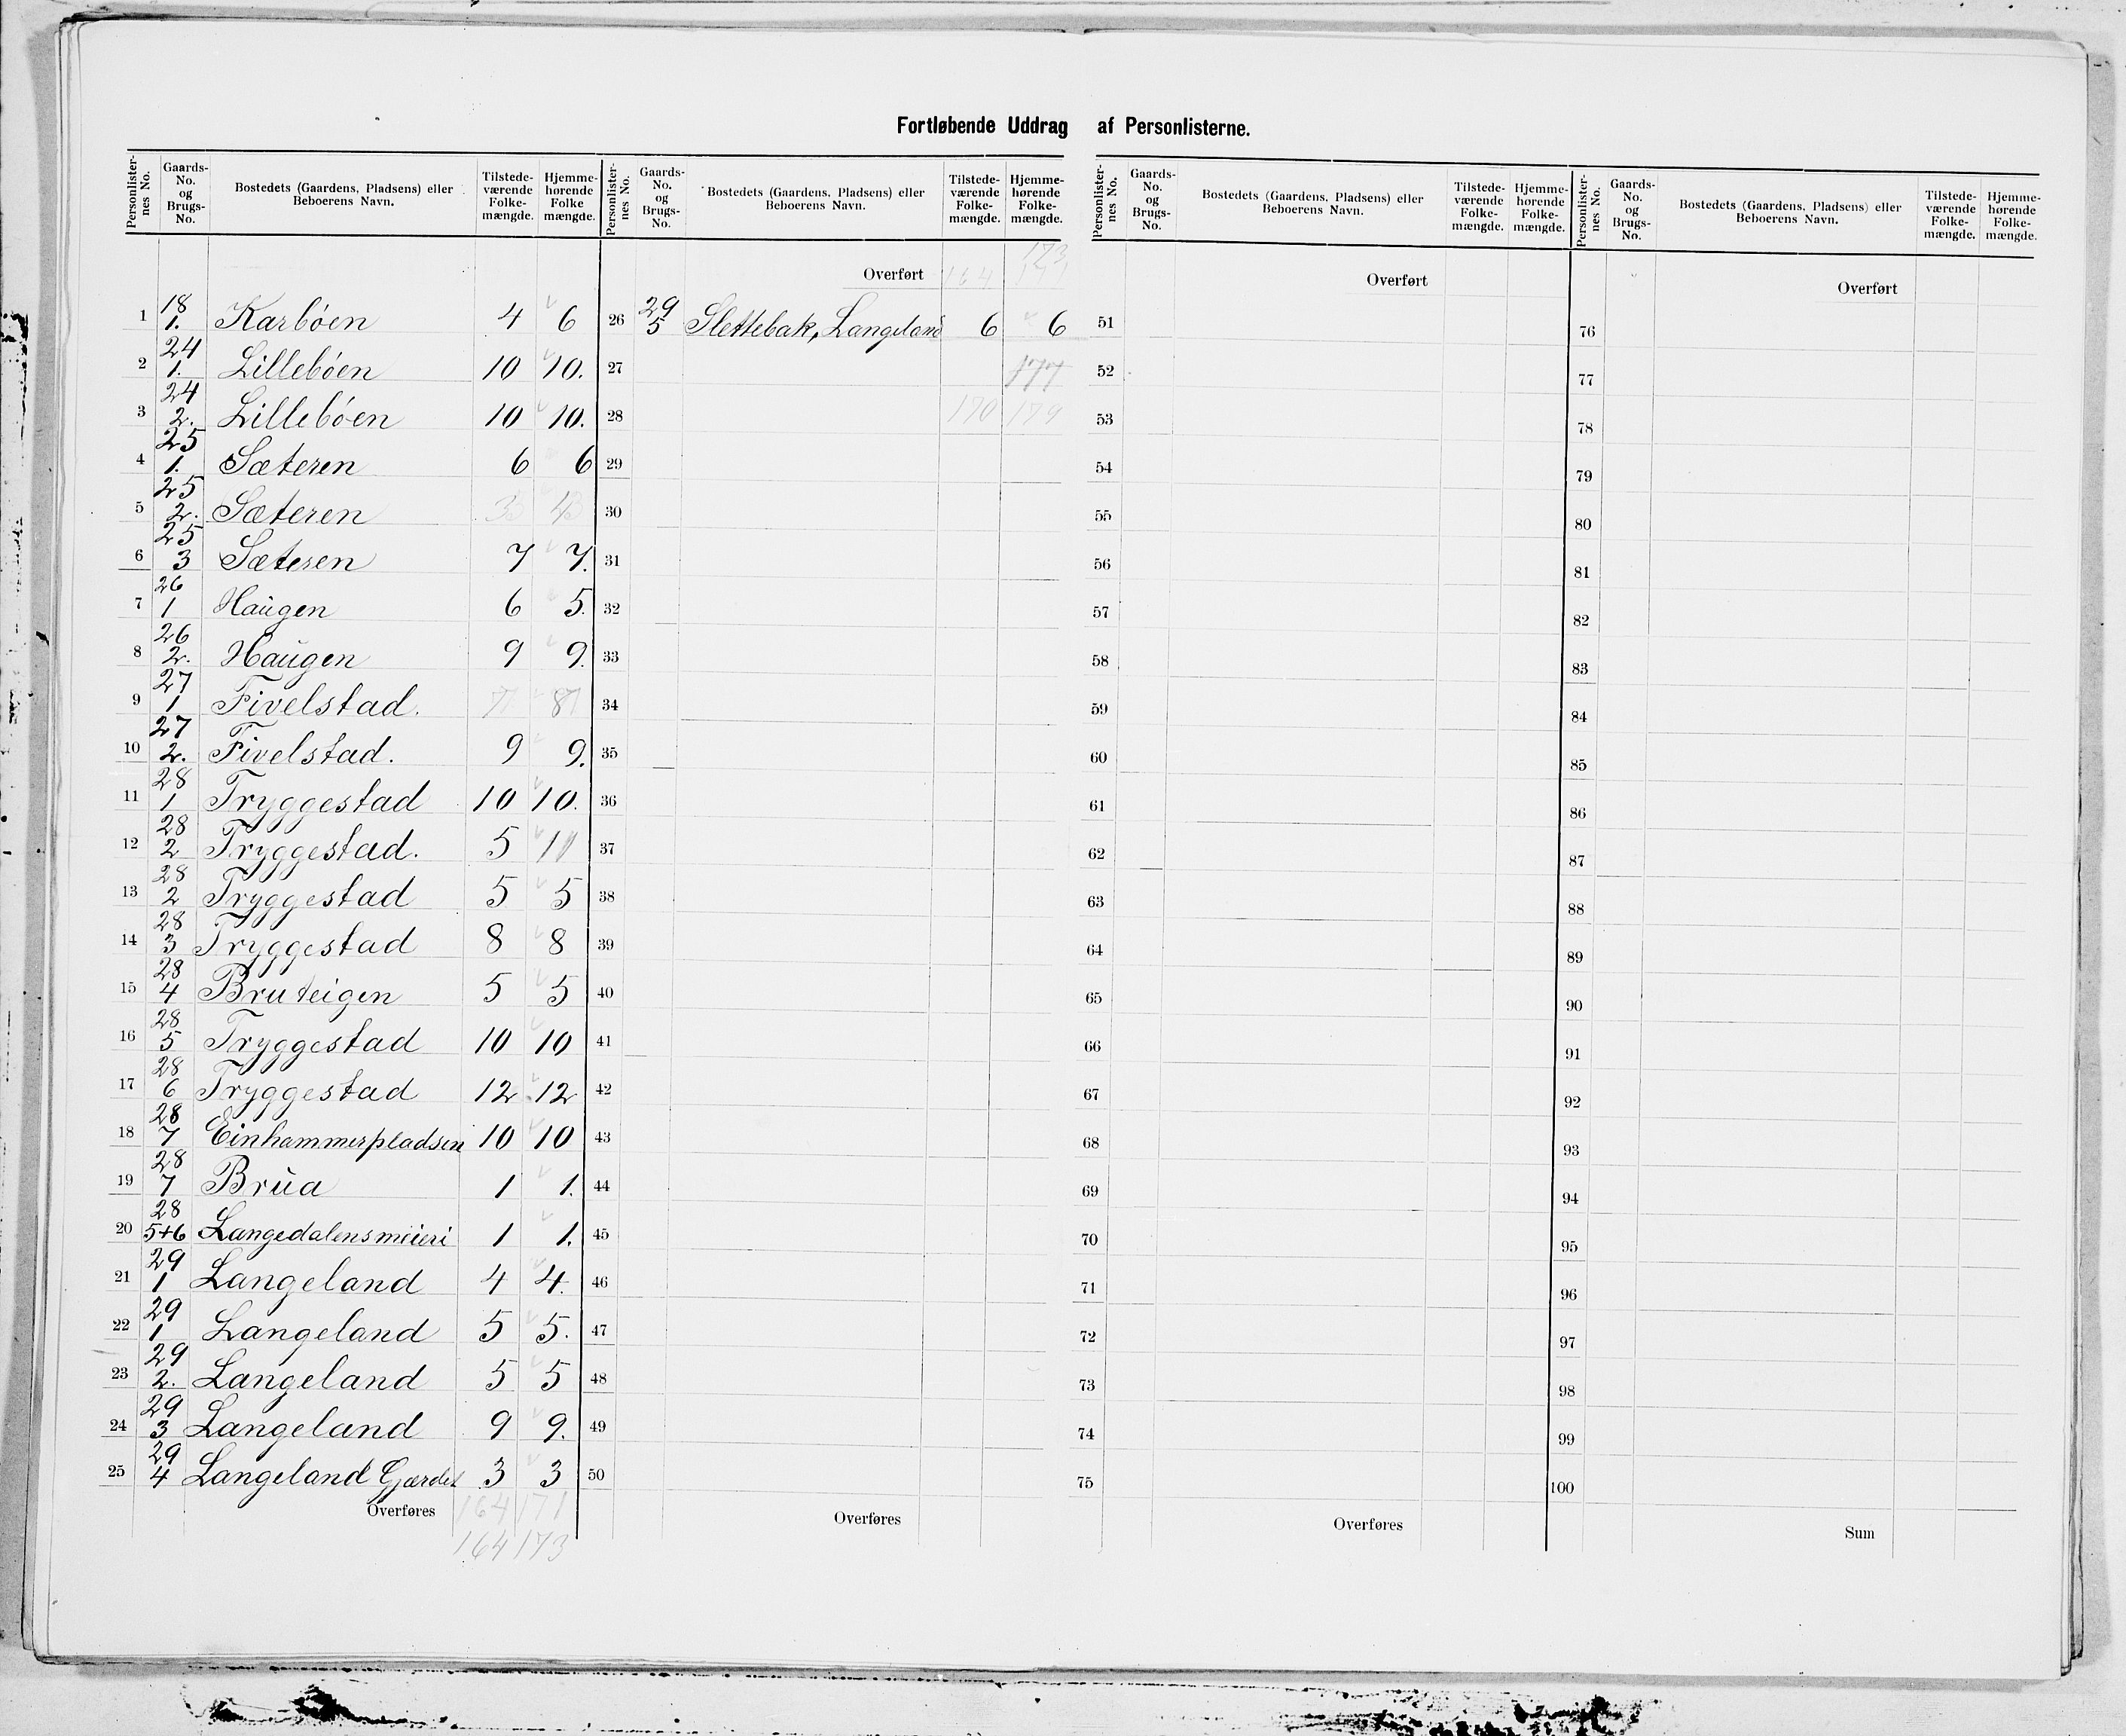 Fortløbende Uddrag af Personlisterne.
Personlisternes No. Gaards-No. og Brugs-No. Bostedets (Gaardens, Pladsens) eller Beboerens Navn. Tilstedeværende Folkemængde. Hjemmehørende Folkemængde.
1 18 1. Karbøen 4 6
2 24 1. Lillebøen 10 10.
3 24 2. Lillebøen 10 10.
4 25 1. Sæteren 6 6
5 25 2. Sæteren
6 25 3 Sæteren 7 7.
7 26 1 Haugen 6 5.
8 26 2. Haugen 9 9.
9 27 1 Fivelstad. 7 8
10 27 2. Fivelstad. 9 9.
11 28 1 Tryggestad 10 10.
12 28 2 Tryggestad. 5 11
13 28 2 Tryggestad 5 5
14 28 3 Tryggestad 8 8
15 28 4 Bruteigen 5 5
16 28 5 Tryggestad 10 10
17 28 6 Tryggestad 12 12
18 28 7 Einhammerpladsen 10 10
19 28 7 Brua 1 1.
20 28 5+6 Langedalensmeieri 1 1.
21 29 1 Langeland 4 4.
22 29 1 Langeland 5 5.
23 29 2. Langeland 5 5
24 29 3 Langeland 9 9.
25 29 4 Langeland Gjærdet 3 3
Overføres 164 171
164 173
Personlisternes No. Gaards-No. og Brugs-No. Bostedets (Gaardens, Pladsens) eller Beboerens Navn. Tilstedeværende Folkemængde. Hjemmehørende Folkemængde.
173
Overført 164 171
26 29 5 Slettebak, Langeland 6 6
27 177
28 170 179
29
30
31
32
33
34
35
36
37
38
39
40
41
42
43
44
45
46
47
48
49
50
Overføres
Personlisternes No. Gaards-No. og Brugs-No. Bostedets (Gaardens, Pladsens) eller Beboerens Navn. Tilstedeværende Folkemængde. Hjemmehørende Folkemængde.
Overført
51
52
53
54
55
56
57
58
59
60
61
62
63
64
65
66
67
68
69
70
71
72
73
74
75
Overføres
Personlisternes No. Gaards-No. og Brugs-No. Bostedets (Gaardens, Pladsens) eller Beboerens Navn. Tilstedeværende Folkemængde. Hjemmehørende Folkemængde.
Overført
76
77
78
79
80
81
82
83
84
85
86
87
88
89
90
91
92
93
94
95
96
97
98
99
100
Sum